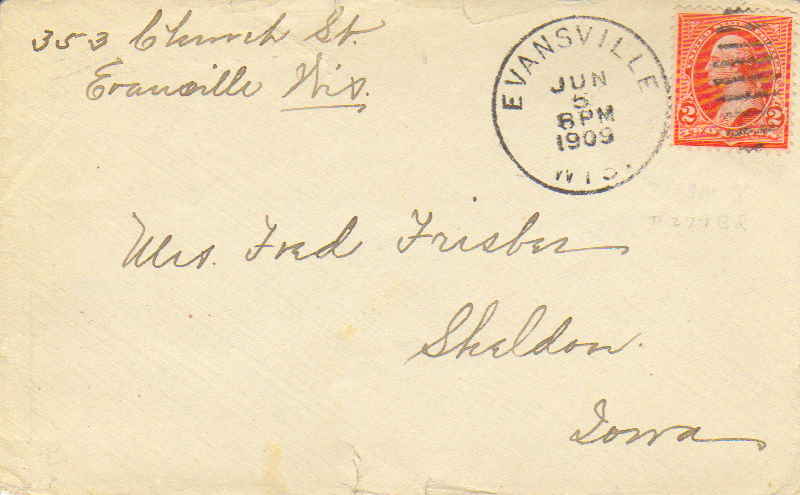 353 Church St.
Evansville Wis.
EVANSVILLE
JUN
5
8 PM
1909
WIS.
2 2
Mrs. Fred Frisbee
Sheldon.
Iowa